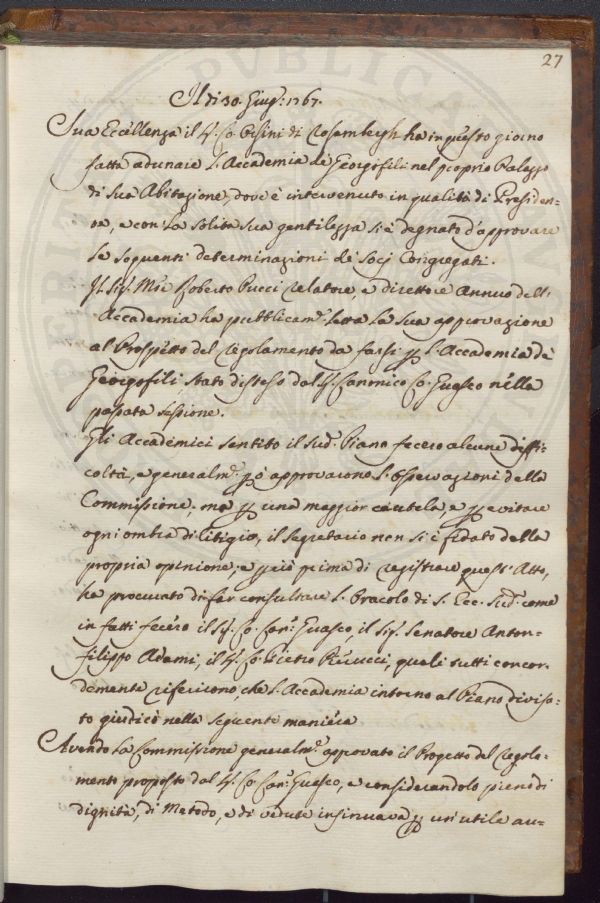 27
Il dì 30. Giug: 1767.
Sua Eccellenza il Sig. Co. Orsini di Rosembergh ha in questo giorno
fatta adunare l'Accademia de Georgofili nel proprio Palazzo
di sua Abitazione, dove è intervenuto in qualità di Presiden=
te, e con la solita sua gentilezza si è degnato d'approvare
le seguenti determinazioni de Socj Congregati.
Il Sig. Mse Roberto Pucci Relatore, e direttore Annuo dell'
Accademia ha pubblicam.e letta la sua approvazione
al Prospetto del regolamento da farsi p l'Accademia de
Georgofili stato disteso dal Sig. Canonico Co. Guasco nella
passata sessione.
Gli Accademici sentito il sud. Piano fecero alcune diffi=
coltà, e generalm.e però approvarono l'osservazioni della
Commissione; ma p una maggior cautela, e p evitare
ogni ombra di litigio, il Segretario non si è fidato della
propria opinione, e p ciò prima di registrare quest'Atto,
ha procurato di far consultare l'Oracolo di S. Ecc. Sud. come
in fatti fecero il Sig. Co. Can: Guasco, il Sig. Senatore Anton=
filippo Adami, il Sig. Co. Pietro Ricucci, quali tutti concor=
demente riferirono, che l'Accademia intorno al Piano diviso=
to giudicò nella seguente maniera
Avendo la Commissione generalm.e approvato il Progetto del regola=
mento proposto dal Sig. Co. Can: Guasco, e considerandolo pieno di
dignità, di Metodo, e di vedute insinuava p un'utile au=
PVBLICA